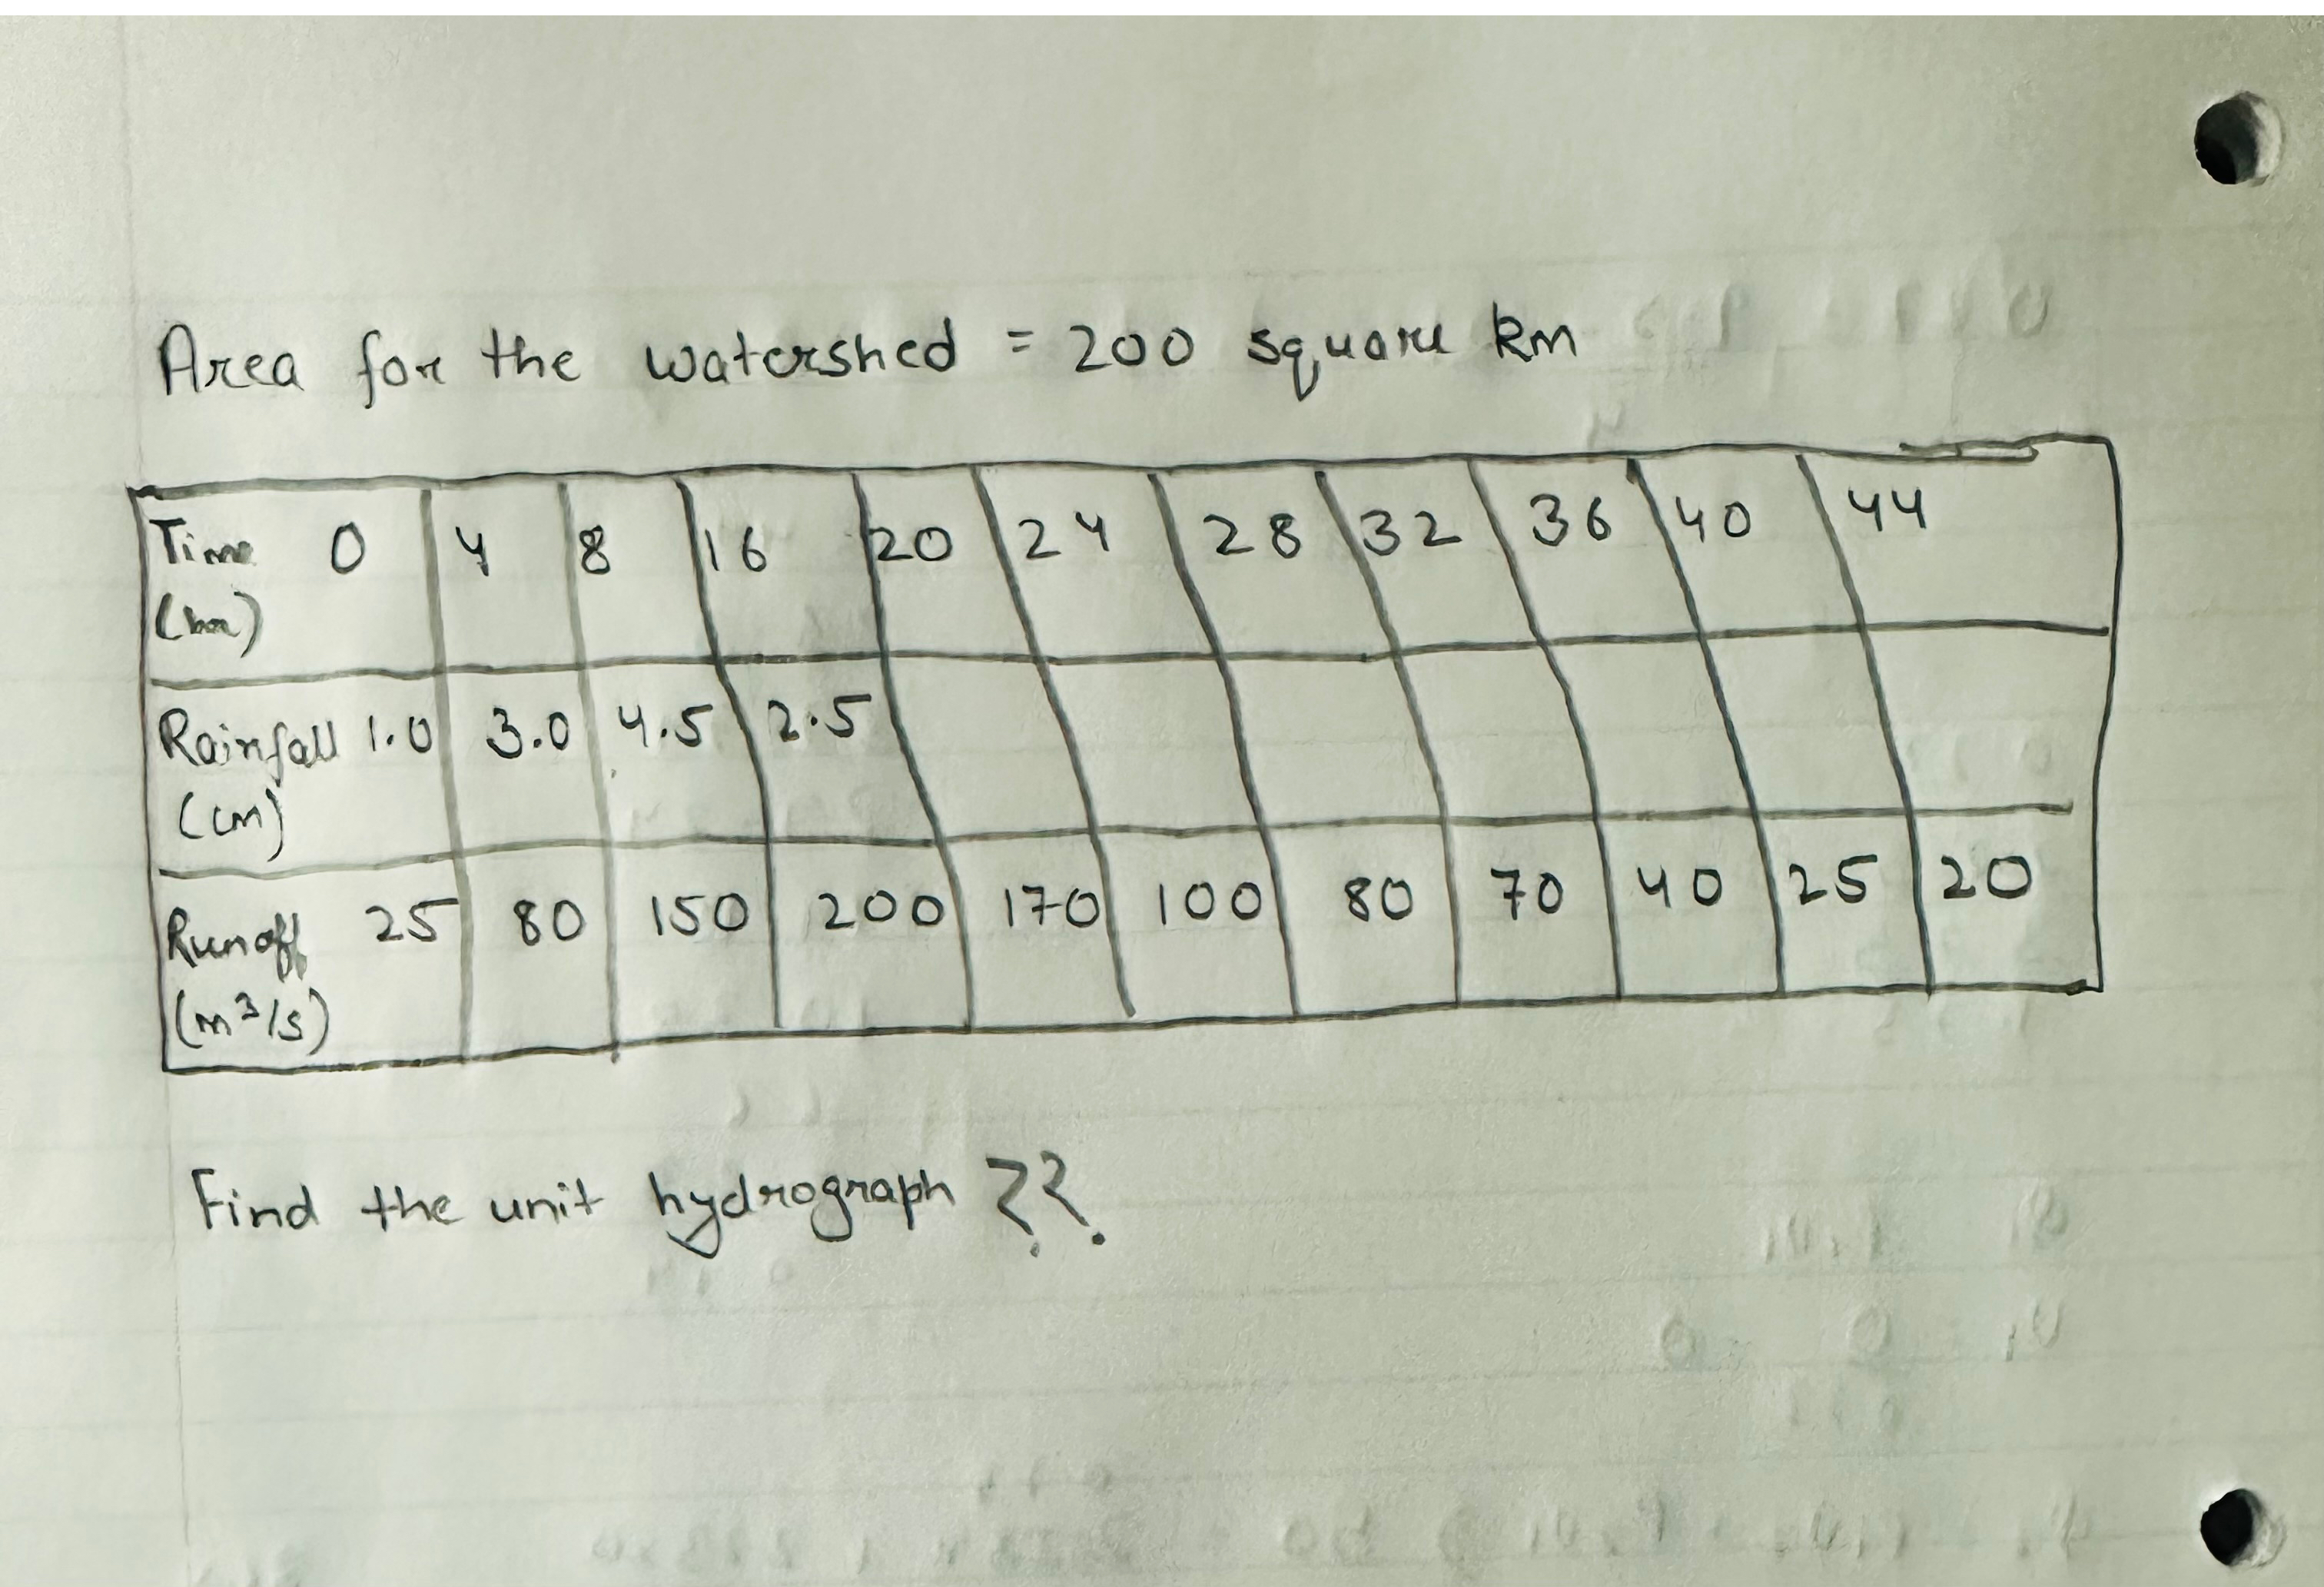 Area for the watershed = 200 square km
Time (hr) 0 4 8 16 20 24 28 32 36 40 44
Rainfall (cm) 1.0 3.0 4.5 2.5
Runoff (m³/s) 25 80 150 200 170 100 80 70 40 25 20
Find the unit hydrograph ??